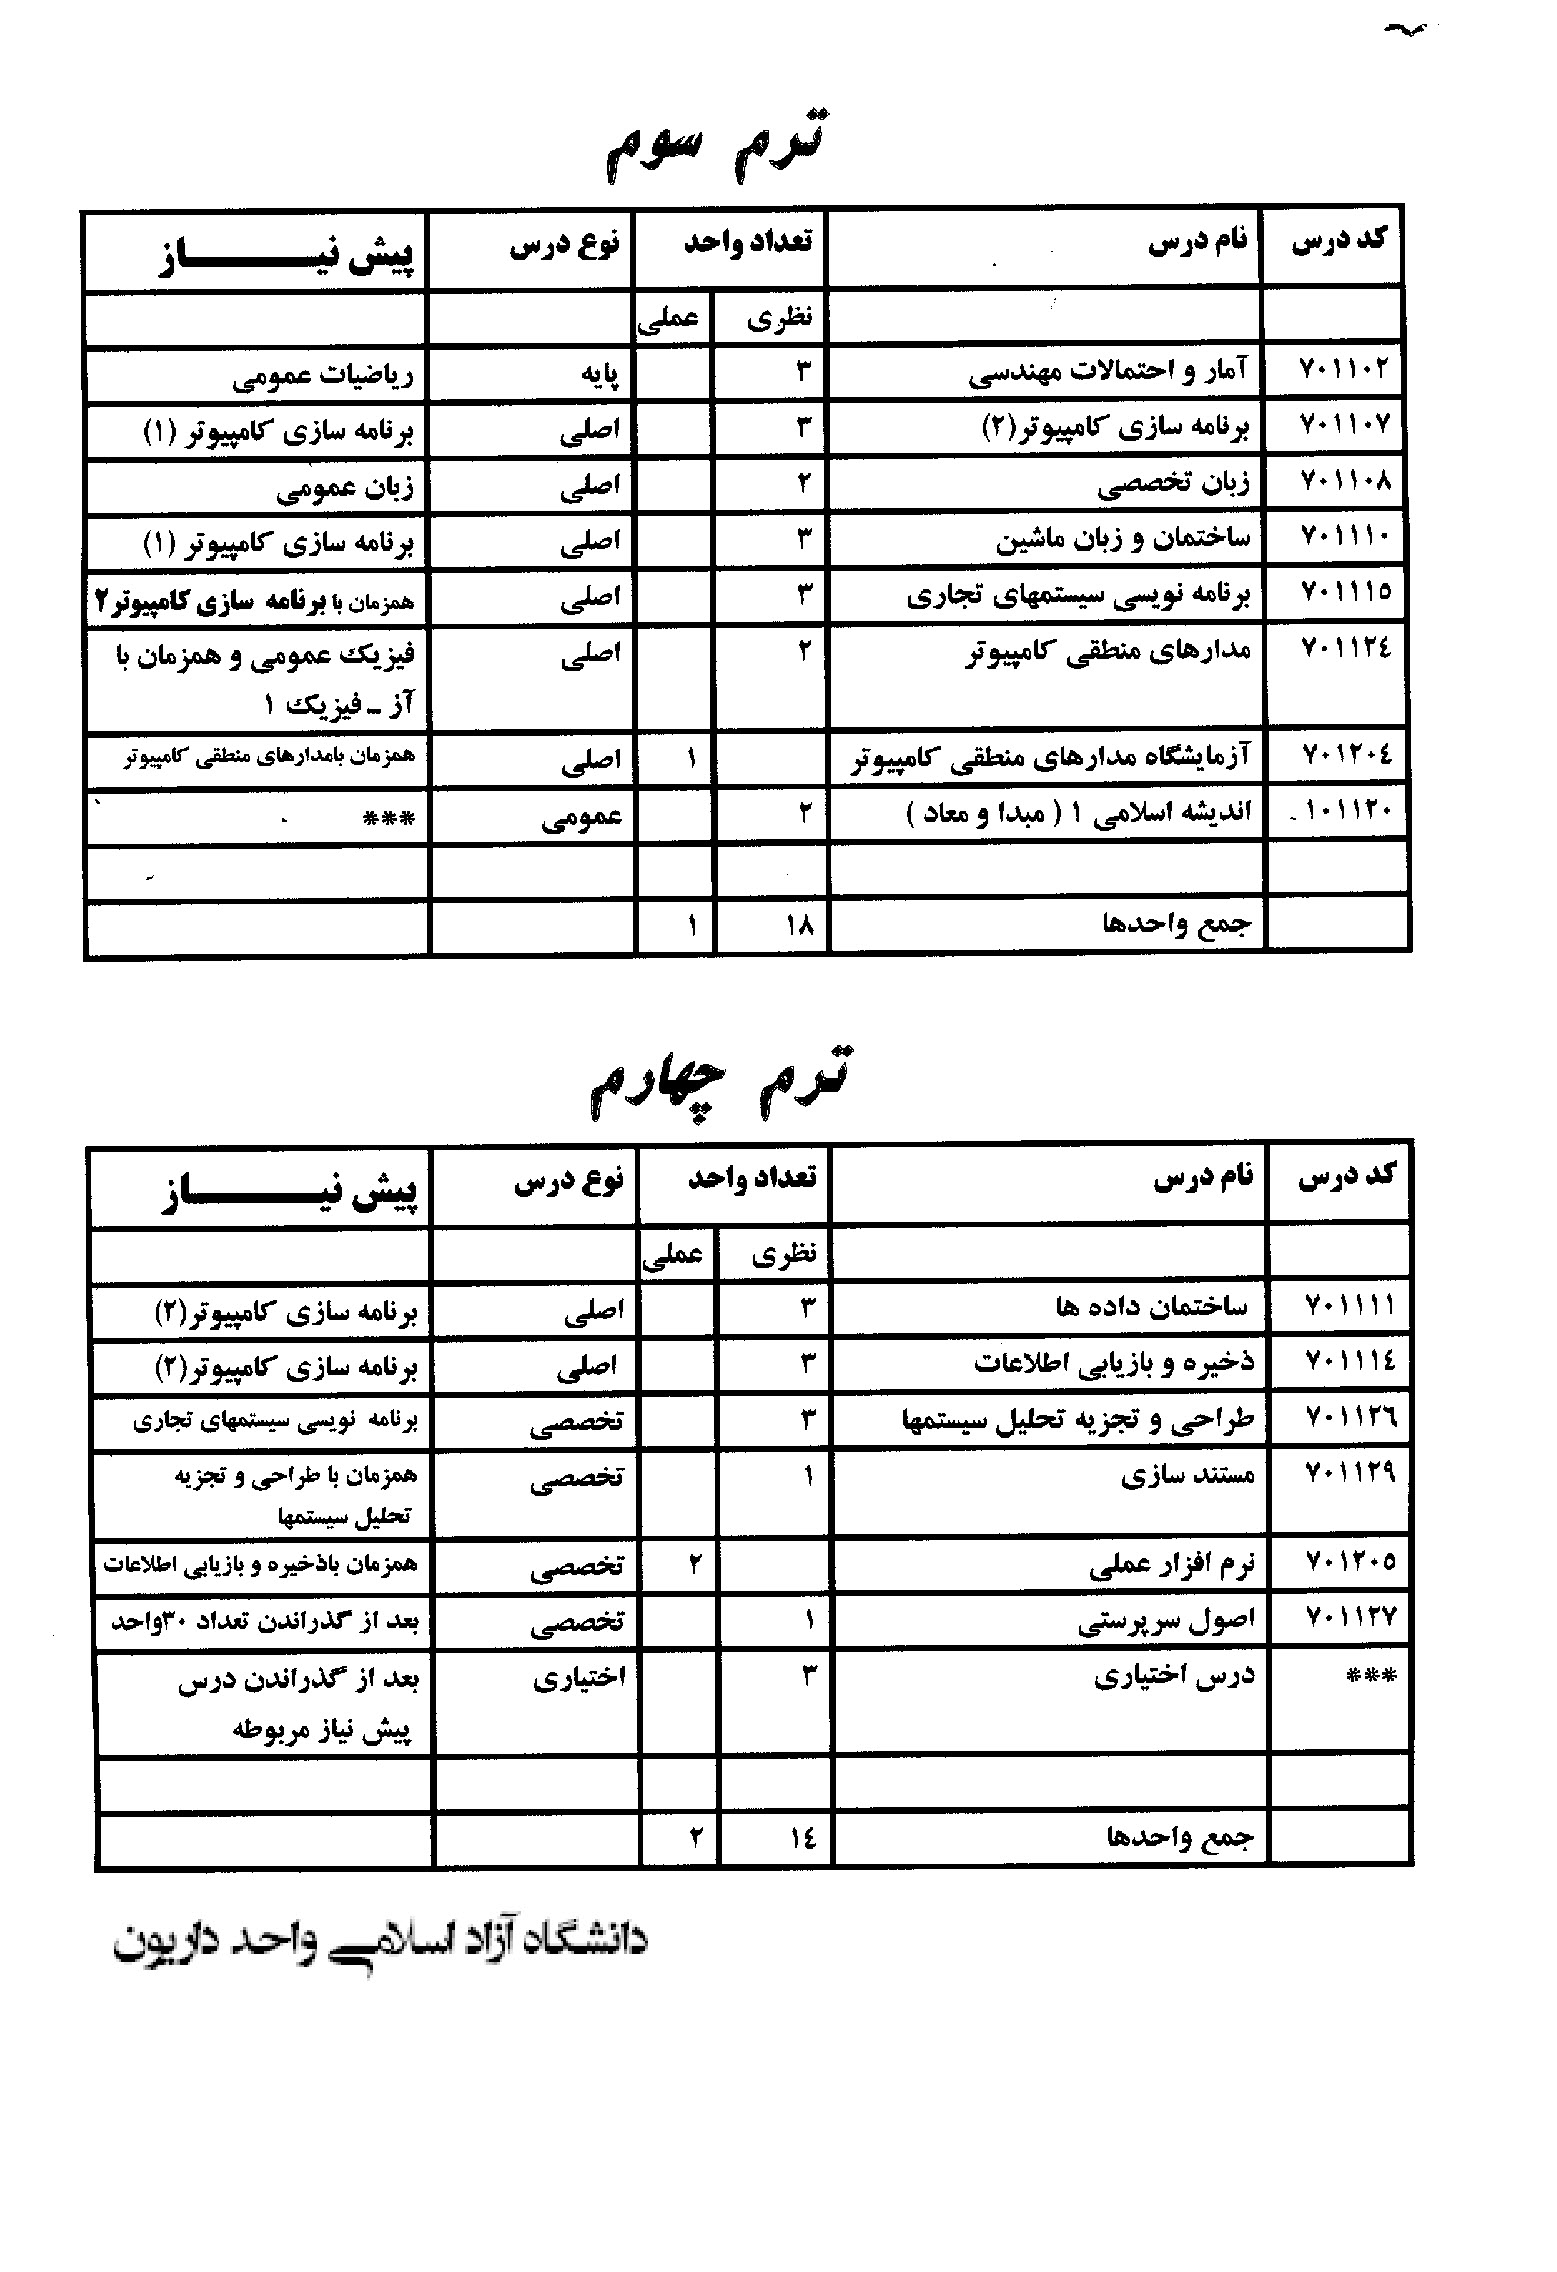 ترم سوم
کد درس نام درس تعداد واحد نوع درس پیش نیـــــاز
نظری عملی
۷۰۱۱۰۲ آمار و احتمالات مهندسی ۳ پایه ریاضیات عمومی
۷۰۱۱۰۷ برنامه سازی کامپیوتر(۲) ۳ اصلی برنامه سازی کامپیوتر (۱)
۷۰۱۱۰۸ زبان تخصصی ۲ اصلی زبان عمومی
۷۰۱۱۱۰ ساختمان و زبان ماشین ۳ اصلی برنامه سازی کامپیوتر (۱)
۷۰۱۱۱۵ برنامه نویسی سیستمهای تجاری ۳ اصلی همزمان با برنامه سازی کامپیوتر۲
۷۰۱۱۲٤ مدارهای منطقی کامپیوتر ۲ اصلی فیزیک عمومی و همزمان با
آز ـ فیزیک ۱
۷۰۱۲۰٤ آزمایشگاه مدارهای منطقی کامپیوتر ۱ اصلی همزمان بامدارهای منطقی کامپیوتر
۱۰۱۱۲۰ اندیشه اسلامی ۱ ( مبدا و معاد ) ۲ عمومی ***
جمع واحدها ۱۸ ۱
ترم چهارم
کد درس نام درس تعداد واحد نوع درس پیش نیـــــاز
نظری عملی
۷۰۱۱۱۱ ساختمان داده ها ۳ اصلی برنامه سازی کامپیوتر(۲)
۷۰۱۱۱٤ ذخیره و بازیابی اطلاعات ۳ اصلی برنامه سازی کامپیوتر(۲)
۷۰۱۱۲٦ طراحی و تجزیه تحلیل سیستمها ۳ تخصصی برنامه نویسی سیستمهای تجاری
۷۰۱۱۲۹ مستند سازی ۱ تخصصی همزمان با طراحی و تجزیه
تحلیل سیستمها
۷۰۱۲۰۵ نرم افزار عملی ۲ تخصصی همزمان باذخیره و بازیابی اطلاعات
۷۰۱۱۲۷ اصول سرپرستی ۱ تخصصی بعد از گذراندن تعداد ۳۰واحد
*** درس اختیاری ۳ اختیاری بعد از گذراندن درس
پیش نیاز مربوطه
جمع واحدها ۱٤ ۲
دانشگاه آزاد اسلامی واحد داریون